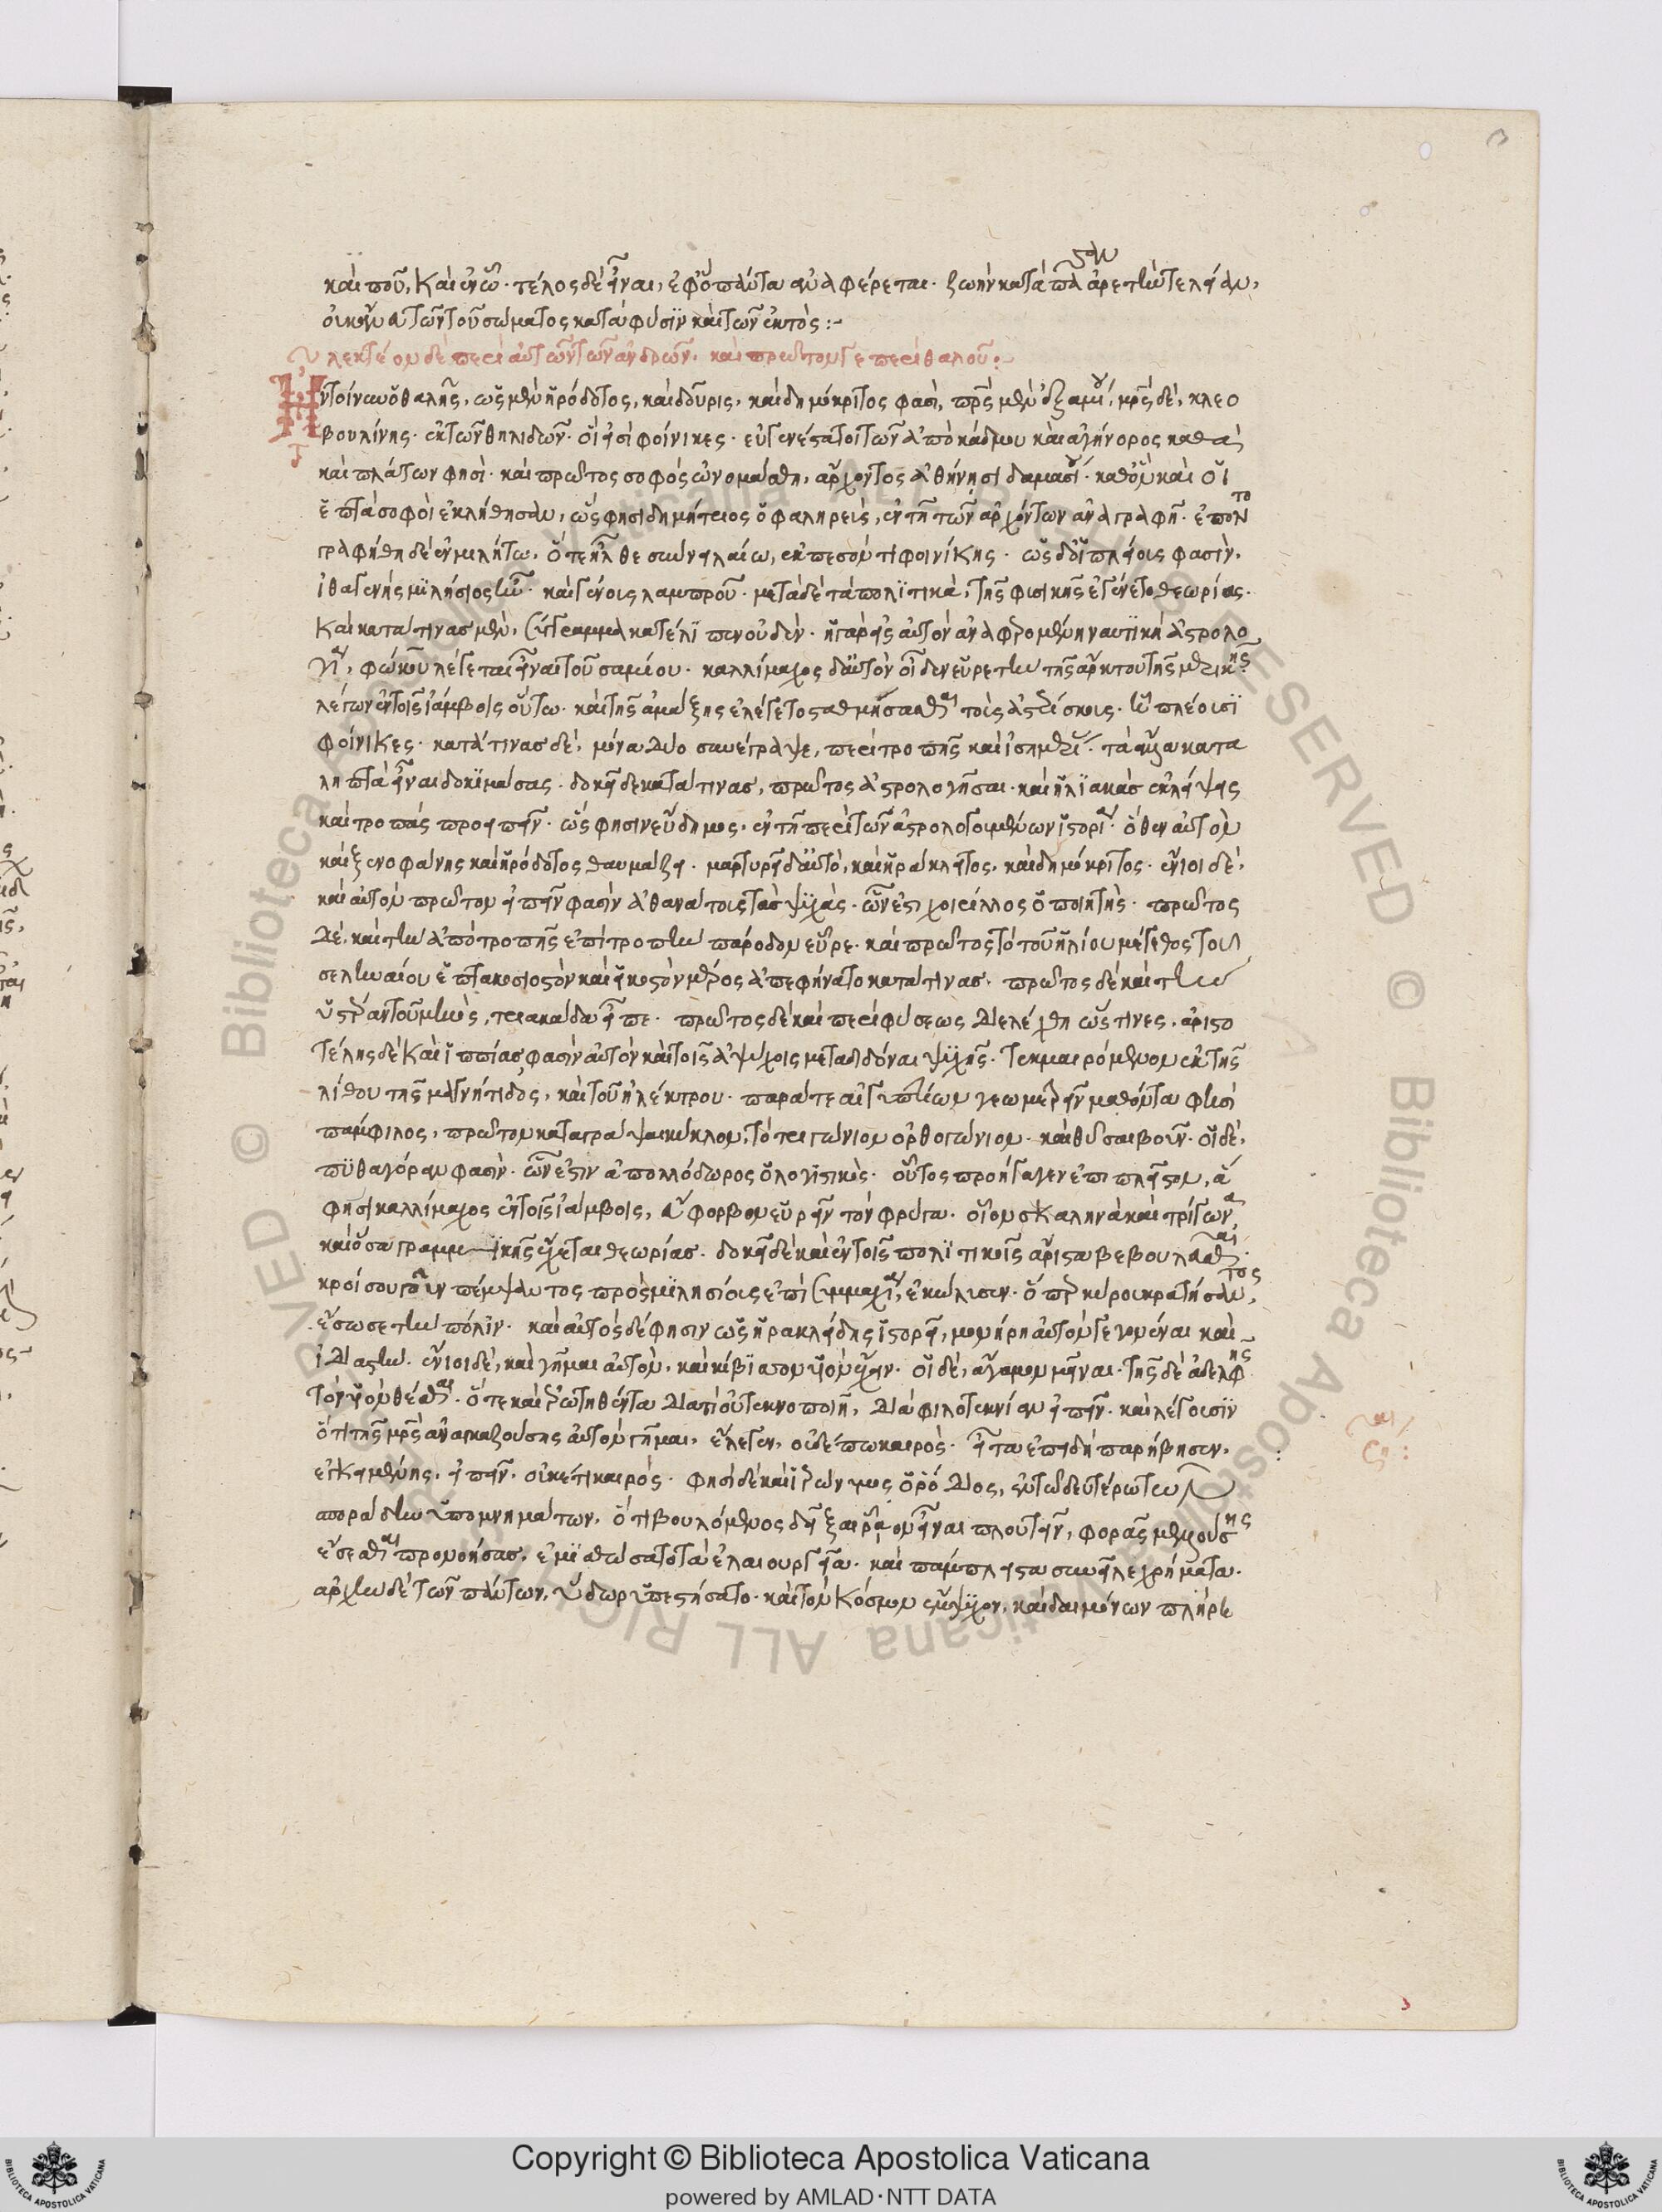 καὶ ποῦ, καὶ ἐν ᾧ. τέλος δὲ εἶναι, ἐφ' ὃ πάντα ἀναφέρεται. ζωὴν κατὰ πᾶσαν ἀρετὴν τελείαν,
οὐκ ἄνευ τῶν τοῦ σώματος κατὰ φύσιν καὶ τῶν ἐκτὸς:-
λεκτέον δὲ περὶ αὐτῶν τῶν ἀνδρῶν. καὶ πρῶτόν γε περὶ θαλοῦ:-
Ην τοίνυν ὁ θαλῆς, ὡς μὲν ἡρόδοτος, καὶ δοῦρις, καὶ δημόκριτος φασὶ, πρς μὲν ἐξαμίου, μρς δὲ, κλεο
βουλίνης. ἐκ τῶν θηλιδῶν. οἵ εἰσὶ φοίνικες. εὐγενέστατοι τῶν ἀπὸ κάδμου καὶ ἀγήνορος καθὰ
καὶ πλάτων φησὶ. καὶ πρῶτος σοφὸς ὠνομάσθη, ἄρχοντος ἀθήνησι δαμασίου. καθ' ὃν καὶ οἱ
ἑπτὰ σοφοὶ ἐκλήθησαν, ὥς φησι δημήτριος ὁ φαληρεὺς, ἐν τῇ τῶν ἀρχόντων ἀναγραφῇ. ἐπολιτο
γραφήθη δὲ ἐν μιλήτω, ὅτε ἦλθε σὺν νειλαίω, ἐκπεσόντι φοινίκης. ὡς δ' οἱ πλείους φασὶν,
ἰθαγενὴς μιλήσιος ἦν. καὶ γένους λαμπροῦ. μετὰ δὲ τὰ πολιτικὰ, τῆς φυσικῆς ἐγένετο θεωρίας.
καὶ κατά τινας μὲν, σύγγραμμα κατέλιπεν οὐδέν. ἡ γὰρ εἰς αὐτὸν ἀναφερομένη ναυτικὴ ἀστρολο
γία, φώκου λέγεται εἶναι τοῦ σαμίου. καλλίμαχος δ' αὐτὸν οἶδεν εὑρετὴν τῆς ἄρκτου τῆς μικρᾶς
λέγων ἐν τοῖς ἰάμβοις οὕτω. καὶ τῆς ἁμάξης ἐλέγετο σταθμήσασθαι τοὺς ἀστερίσκους. ᾗ πλέουσι
φοίνικες. κατά τινας δὲ, μόνα δύο συνέγραψε, περὶ τροπῆς καὶ ἰσημερίας. τὰ ἄλλα κατα
ληπτὰ εἶναι δοκιμάσας. δοκεῖ δὲ κατά τινας, πρῶτος ἀστρολογῆσαι. καὶ ἡλιακὰς ἐκλείψεις
καὶ τροπὰς προειπεῖν. ὥς φησιν εὔδημος. ἐν τῇ περὶ τῶν ἀστρολογουμένων ἱστορία. ὅθεν αὐτὸν
καὶ ξενοφάνης καὶ ἡρόδοτος θαυμάζει. μαρτυρεῖ δ' αὐτῷ, καὶ ἡράκλειτος. καὶ δημόκριτος. ἔνιοι δὲ,
καὶ αὐτὸν πρῶτον εἰπεῖν φασὶν ἀθανάτους τὰς ψυχὰς. ὧν ἐστι χοιρίλλος ὁ ποιητὴς. πρῶτος
δὲ, καὶ τὴν ἀπὸ τροπῆς ἐπὶ τροπὴν πάροδον εὗρε. καὶ πρῶτος τὸ τοῦ ἡλίου μέγεθος τοῦ
σεληναίου ἑπτακοσιοστὸν καὶ εἰκοστὸν μέρος ἀπεφήνατο κατά τινας. πρῶτος δὲ καὶ τὴν
ὑστέραν τοῦ μηνὸς, τριακάδα εἶπε. πρῶτος δὲ καὶ περὶ φύσεως διελέχθη ὥς τινες. ἀριστο
τέλης δὲ καὶ ἱππίας φασὶν αὐτὸν καὶ τοῖς ἀψύχοις μεταδιδόναι ψυχῆς. τεκμαιρόμενον ἐκ τῆς
λίθου τῆς μαγνήτιδος, καὶ τοῦ ἠλέκτρου. παρά τε αἰγυπτίων γεωμετρεῖν μαθόντα φησὶ
παμφίλος, πρῶτον καταγράψαι κύκλου, τὸ τριγώνιον ὀρθογώνιον. καὶ θῦσαι βοῦν. οἱ δὲ,
πυθαγόραν φασὶν. ὧν ἐστιν ἀπολλόδωρος ὁ λογιστικὸς. οὗτος προήγαγεν ἐπὶ πλεῖστον, ἅ
φησι καλλίμαχος ἐν τοῖς ἰάμβοις, εὔφορβον εὑρεῖν τὸν φρύγα. οἷον σκαληνὰ καὶ τρίγωνα
καὶ ὅσα γραμμικῆς ἔχεται θεωρίας. δοκεῖ δὲ καὶ ἐν τοῖς πολιτικοῖς ἄριστα βεβουλεῦσθαι.
κροίσου γοῦν πέμψαντος πρὸς μιλησίους ἐπὶ συμμαχία, ἐκώλυσεν. ὅπερ κύρου κρατήσαντος,
ἔσωσε τὴν πόλιν. καὶ αὐτὸς δέ φησιν ὡς ἡρακλείδης ἱστορεῖ, μονήρη αὐτὸν γεγονέναι καὶ
ἰδιαστὴν. ἔνιοι δὲ, καὶ γῆμαι αὐτὸν, καὶ κίβισσον υἱὸν ἔχειν. οἱ δὲ, ἄγαμον μεῖναι. τῆς δὲ ἀδελφῆς
τὸν υἱὸν θέσθαι. ὅτε καὶ ἐρωτηθέντα διατί οὐ τεκνοποιεῖ, διὰ φιλοτεκνίαν εἰπεῖν. καὶ λέγουσιν
ὅτι τῆς μρς ἀναγκαζούσης αὐτὸν γῆμαι, ἔλεγεν, οὐδέπω καιρὸς. εἶτα ἐπειδὴ παρήβησεν,
ἐγκειμένης, εἰπεῖν, οὐκέτι καιρός. φησὶ δὲ καὶ ἱερώνυμος ὁ ῥόδιος, ἐν τῶ δευτέρω τῶν
σποράδην ὑπομνημάτων, ὅτι βουλόμενος δεῖξαι ῥᾷον εἶναι πλουτεῖν, φορᾶς μελλούσης
ἔσεσθαι προνοήσας, ἐμισθώσατο τὰ ἐλαιουργεῖα. καὶ πάμπλειστα συνεῖλε χρήματα.
ἀρχὴν δὲ τῶν πάντων, ὕδωρ ὑπεστήσατο. καὶ τὸν κόσμον ἔμψυχον, καὶ δαιμόνων πλήρη
Copyright © Biblioteca Apostolica Vaticana
powered by AMLAD·NTT DATA